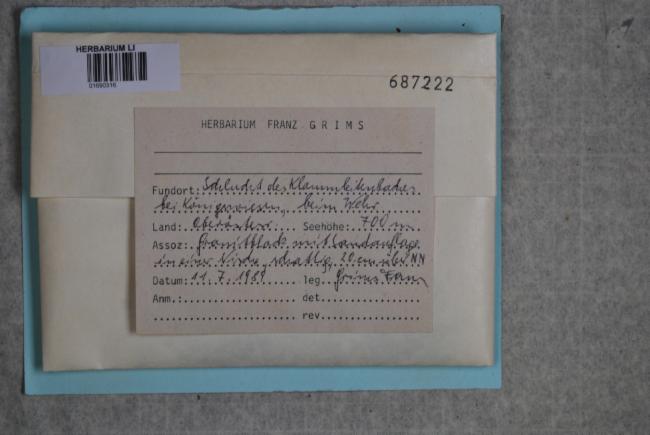 HERBARIUM LI
01690316
687222
HERBARIUM FRANZ GRIMS
Fundort: Schlucht des Klammleitenbaches
bei Königswiesen, beim Wehr
Land: Oberösterr. Seehöhe: 700 m
Assoz: Granitblock mit
in einer Nische, schattig, 20 cm
Datum: 11.7.1989 leg. Grims Franz
Anm.: det.
rev.